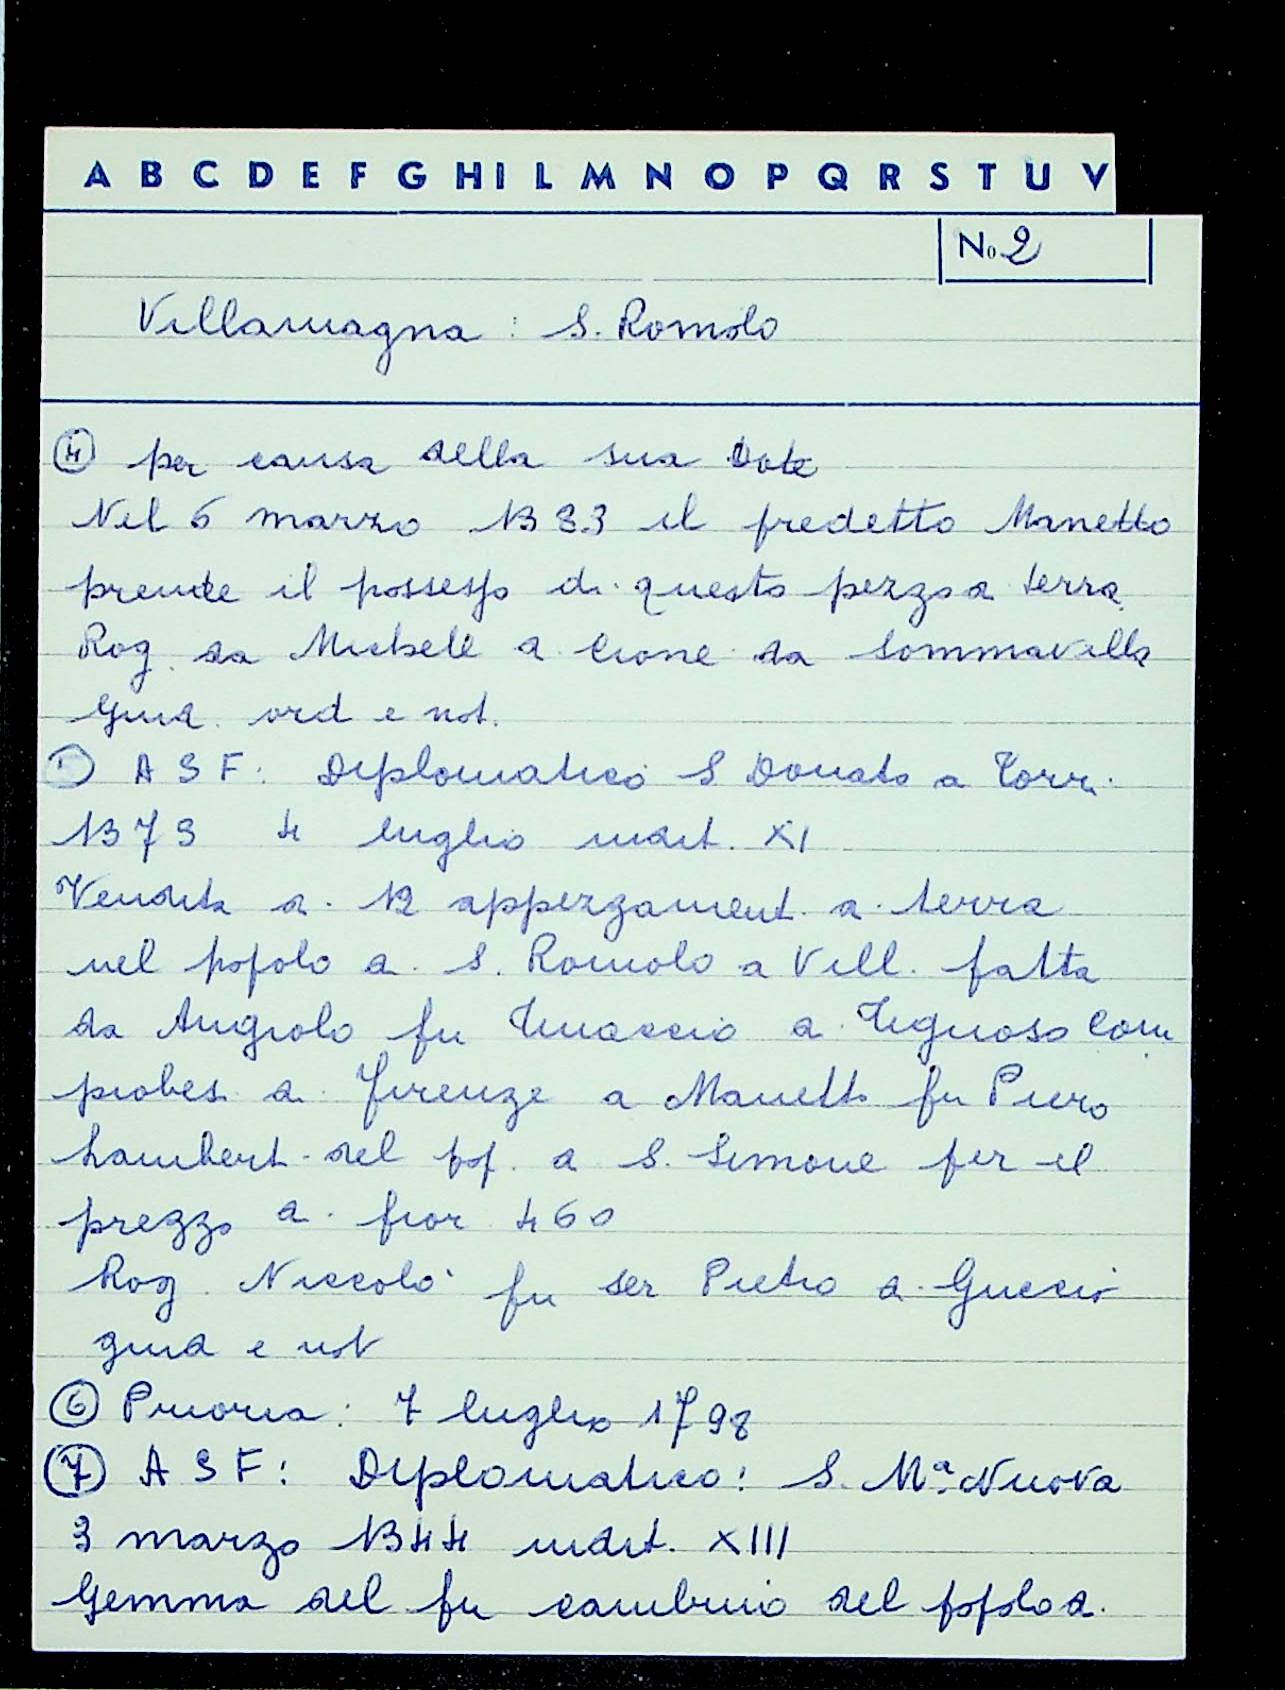 A B C D E F G H I L M N O P Q R S T U V
No 2
Villamagna : S. Romolo
④ per causa della sua Dote
Nel 6 marzo 1383 il predetto Manetto
prende il possesso di questo pezzo d. terra
Rog. da Michele d. Cione da Sommavilla
giud. ord e not.
ASF: Diplomatico S Donato a Torri
1373 4 luglio indit. XI
Vendita d. 12 appezzament. d. terra
nel popolo d. S. Romolo a Vill. fatta
da Angiolo fu d. Tignoso Com
d. Firenze a Manetto fu Piero
Lambert. del pop. d. S. Simone per il
prezzo d. fior 460
Rog. Niccolò fu ser Pietro d. Gucci
giud e not
⑥ Prioria: 7 luglio 1798
⑦ ASF: Diplomatico: S. Mª. Nuova
3 marzo 1344 indit. XIII
Gemma del fu Cambino del popolo d.